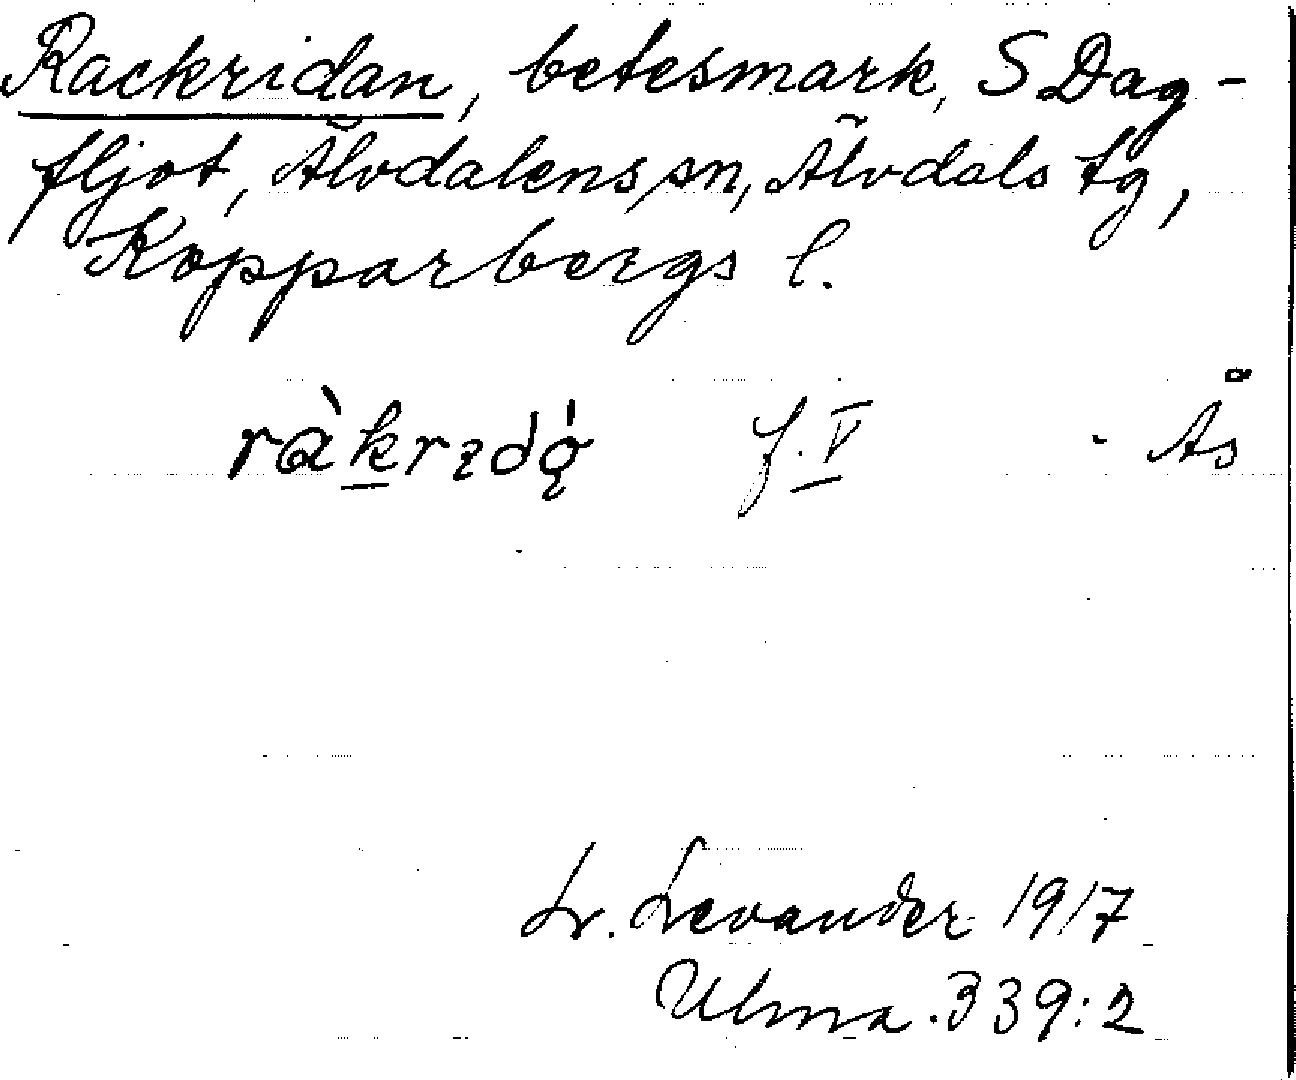 Rackridan, betesmark, S Dag-
fljot, Älvdalens sn, Älvdals tg,
Kopparbergs l.
ràkrɪdą̇ f. V - Ås
Lr. Levander 1917
Ulma. 339:2